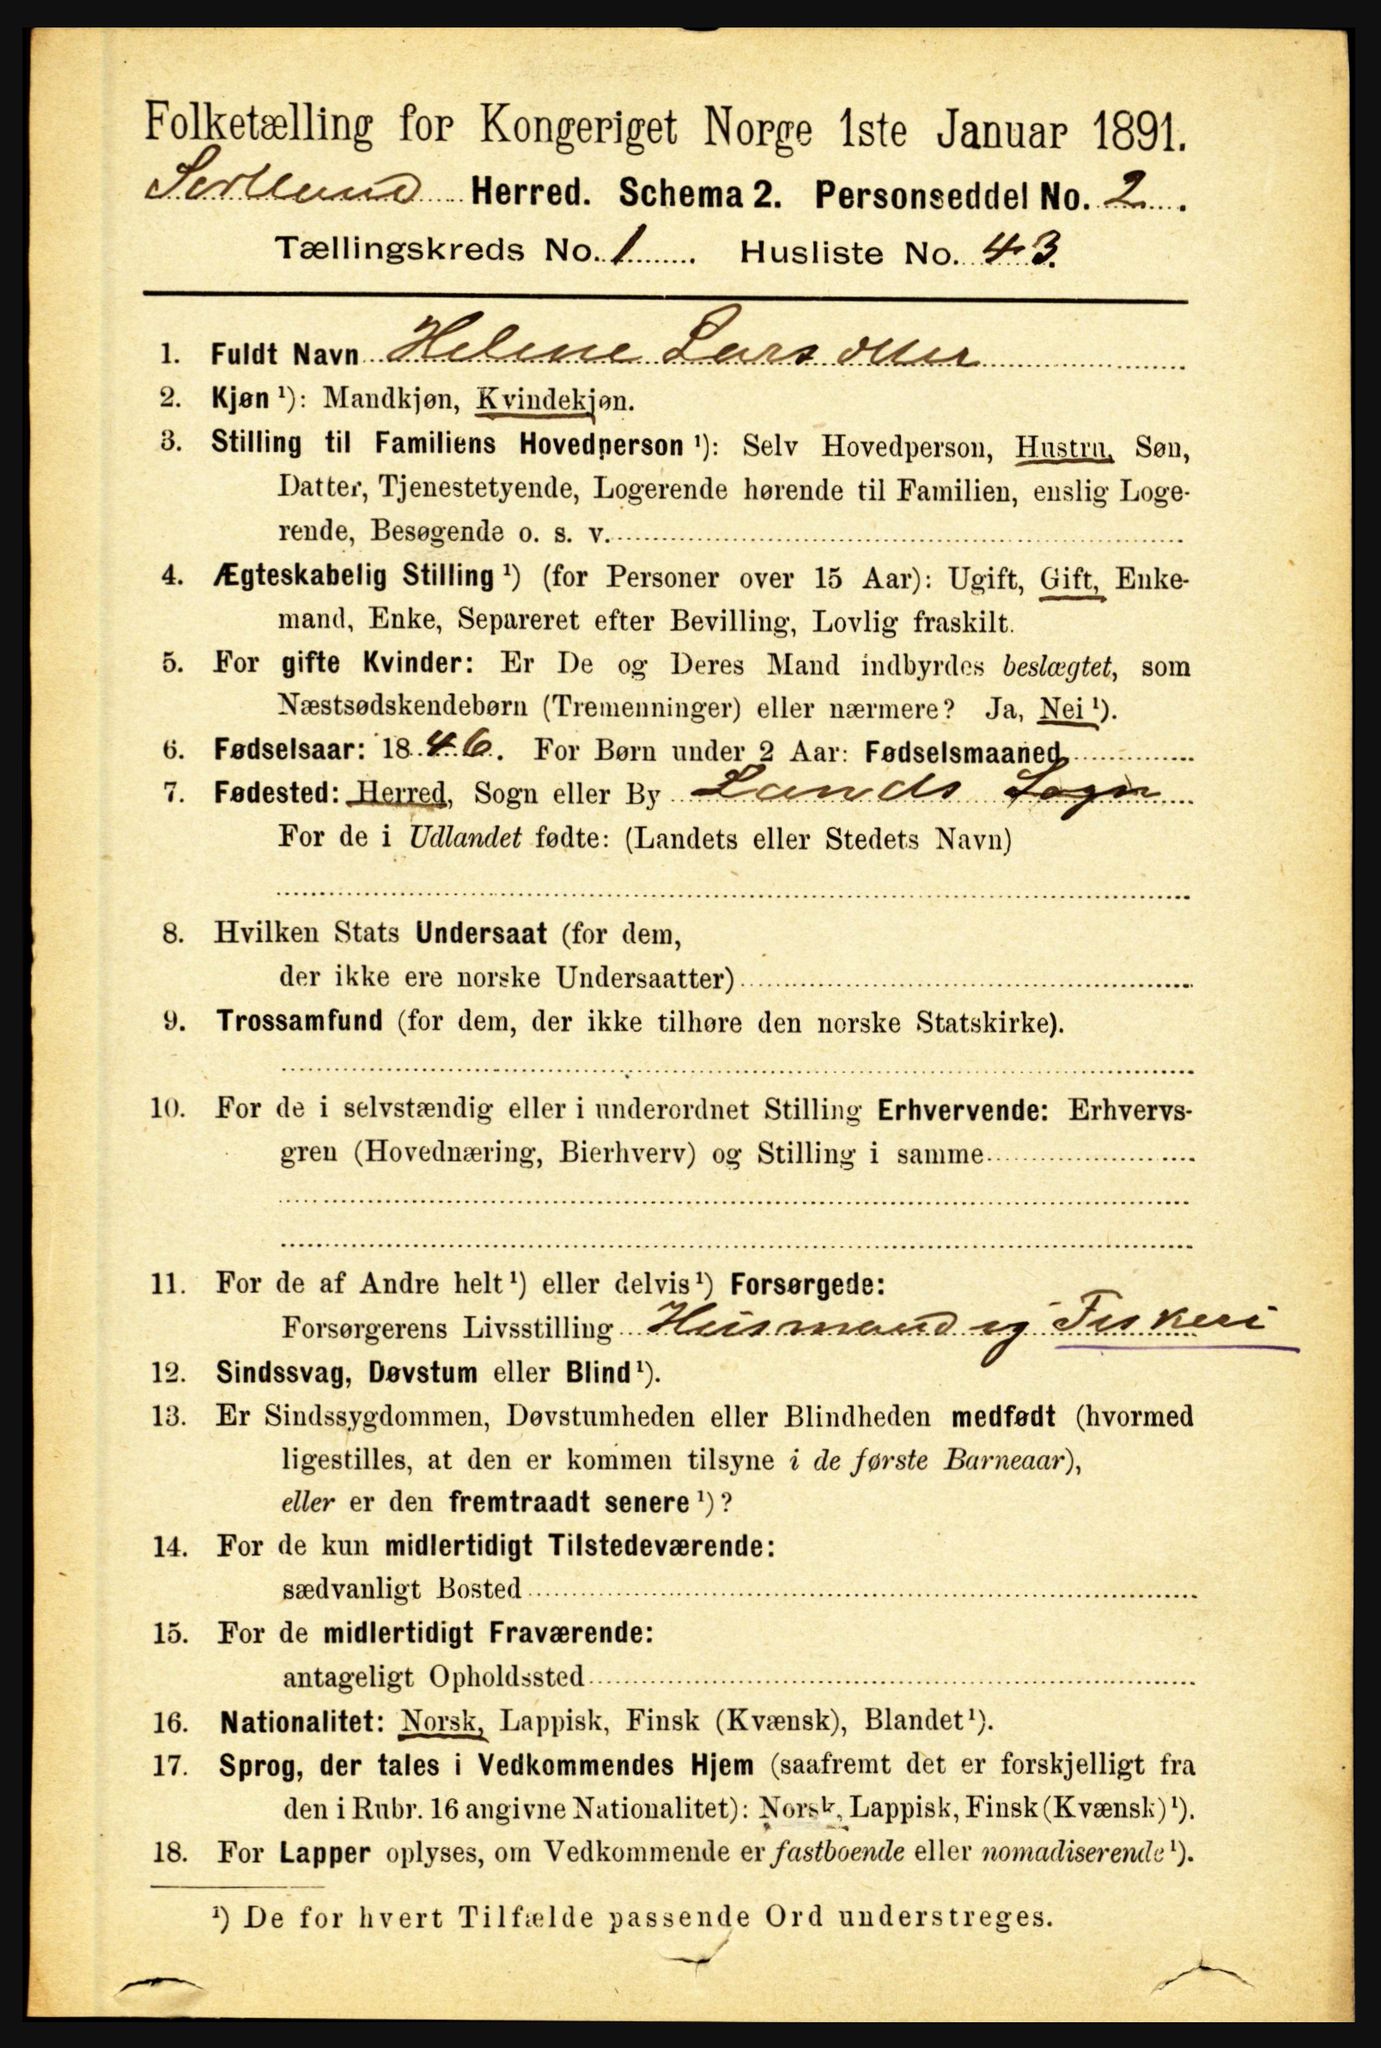 Folketælling for Kongeriget Norge 1ste Januar 1891.
Sortland Herred. Schema 2. Personseddel No. 2.
Tællingskreds No. 1. Husliste No. 43.
1. Fuldt Navn Helene Larsdtter
2. Kjøn ¹): Mandkjøn, Kvindekjøn.
3. Stilling til Familiens Hovedperson ¹): Selv Hovedperson, Hustru, Søn,
Datter, Tjenestetyende, Logerende hørende til Familien, enslig Loge-
rende, Besøgende o. s. v.
4. Ægteskabelig Stilling ¹) (for Personer over 15 Aar): Ugift, Gift, Enke-
mand, Enke, Separeret efter Bevilling, Lovlig fraskilt.
5. For gifte Kvinder: Er De og Deres Mand indbyrdes beslægtet, som
Næstsødskendebørn (Tremenninger) eller nærmere? Ja, Nei ¹).
6. Fødselsaar: 1846. For Børn under 2 Aar: Fødselsmaaned
7. Fødested: Herred, Sogn eller By Lands Sogn
For de i Udlandet fødte: (Landets eller Stedets Navn)
8. Hvilken Stats Undersaat (for dem,
der ikke ere norske Undersaatter)
9. Trossamfund (for dem, der ikke tilhøre den norske Statskirke).
10. For de i selvstændig eller i underordnet Stilling Erhvervende: Erhvervs-
gren (Hovednæring, Bierhverv) og Stilling i samme
11. For de af Andre helt ¹) eller delvis ¹) Forsørgede:
Forsørgerens Livsstilling Husmand og Fiskeri
12. Sindssvag, Døvstum eller Blind ¹).
13. Er Sindssygdommen, Døvstumheden eller Blindheden medfødt (hvormed
ligestilles, at den er kommen tilsyne i de første Barneaar),
eller er den fremtraadt senere ¹)?
14. For de kun midlertidigt Tilstedeværende:
sædvanligt Bosted
15. For de midlertidigt Fraværende:
antageligt Opholdssted
16. Nationalitet: Norsk, Lappisk, Finsk (Kvænsk), Blandet ¹).
17. Sprog, der tales i Vedkommendes Hjem (saafremt det er forskjelligt fra
den i Rubr. 16 angivne Nationalitet): Norsk, Lappisk, Finsk (Kvænsk) ¹).
18. For Lapper oplyses, om Vedkommende er fastboende eller nomadiserende ¹).
¹) De for hvert Tilfælde passende Ord understreges.